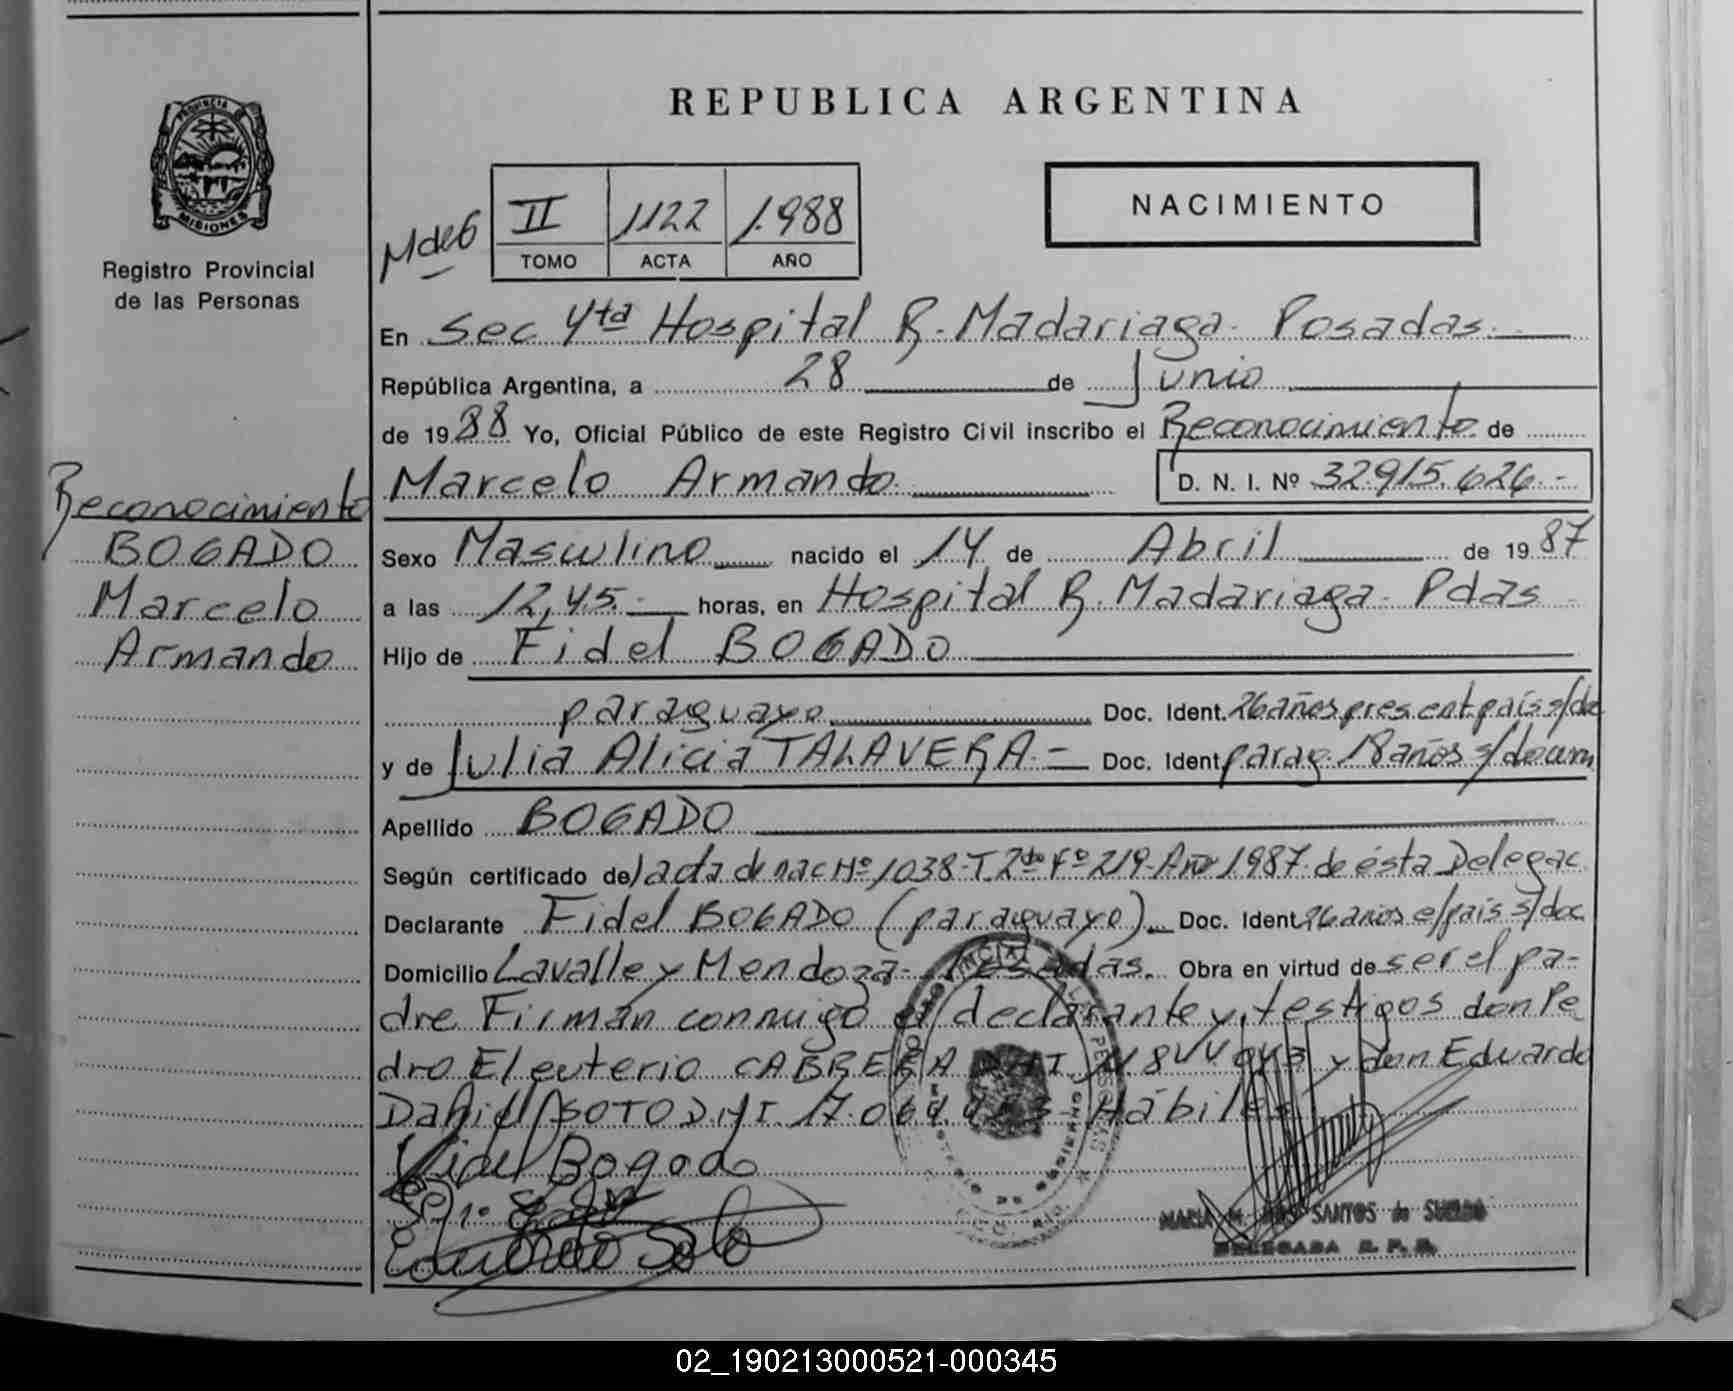 REPUBLICA ARGENTINA
PROVINCIA
MISIONES
Registro Provincial
de las Personas
Mde6
II 1122 1.988
TOMO ACTA AÑO
NACIMIENTO
En Sec 4ta Hospital R. Madariaga. Posadas.
República Argentina, a 28 de Junio
de 1988 Yo, Oficial Público de este Registro Civil inscribo el Reconocimiento de
Marcelo Armando. D. N. I. Nº 32.915.626.-
Reconocimiento
BOGADO
Marcelo
Armando
Sexo Masculino nacido el 14 de Abril de 1987
a las 12,45.- horas, en Hospital R. Madariaga. Pdas
Hijo de Fidel BOGADO
paraguayo Doc. Ident. 26 años pres. ent. país s/doc
y de Julia Alicia TALAVERA.- Doc. Ident parag. 18 años s/docum
Apellido BOGADO
Según certificado de) acta de nac Nº 1038-T. 2do Fº 219-Año 1987. de ésta Delegac.
Declarante Fidel BOGADO (paraguayo). Doc. Ident. 26 años e/país s/doc
Domicilio Lavalle y Mendoza- Posadas. Obra en virtud de ser el pa-
dre Firman conmigo el declarante y testigos don Pe
dro Eleuterio CABRERA y don Eduardo
Daniel SOTO D.N.I. 17.064. Hábiles.
Fidel Bogado
Eduardo Soto
MARIA DOS SANTOS de SUELDO
DELEGADA R. P. P.
02_190213000521-000345